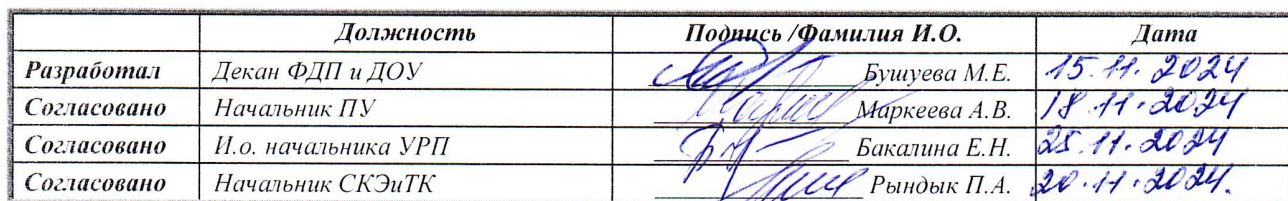 Должность Подпись /Фамилия И.О. Дата
Разработал Декан ФДП и ДОУ Бушуева М.Е. 15.11.2024
Согласовано Начальник ПУ Маркеева А.В. 18.11.2024
Согласовано И.о. начальника УРП Бакалина Е.Н. 25.11.2024
Согласовано Начальник СКЭиТК Рындык П.А. 20.11.2024.